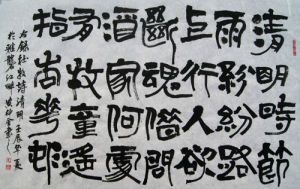 清明時節
雨紛紛路
上行人欲
斷魂借問
酒家何處
有牧童遙
指杏花邨
右錄杜牧詩清明壬辰年夏
於雅礱江畔